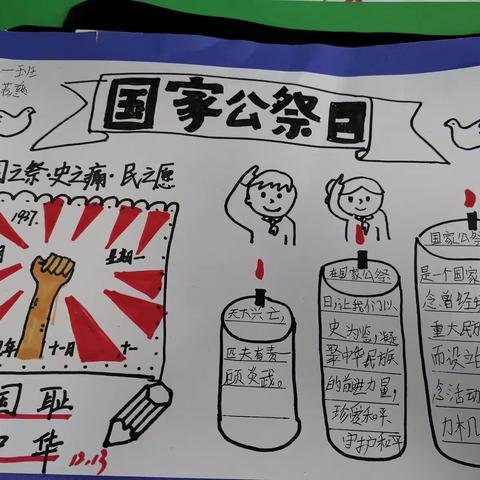 一班
国家公祭日
国之祭·史之痛·民之愿
1937.
星期一
年 十一月 十一
国耻
中华
12.13
天下兴亡,
匹夫有责
顾炎武。
在国家公祭
日让我们以
史为鉴,凝
聚中华民族
的前进力量,
珍爱和平
守护和平
国家公祭
是一个国家
念曾经
重大民
而设立
念活动
力机